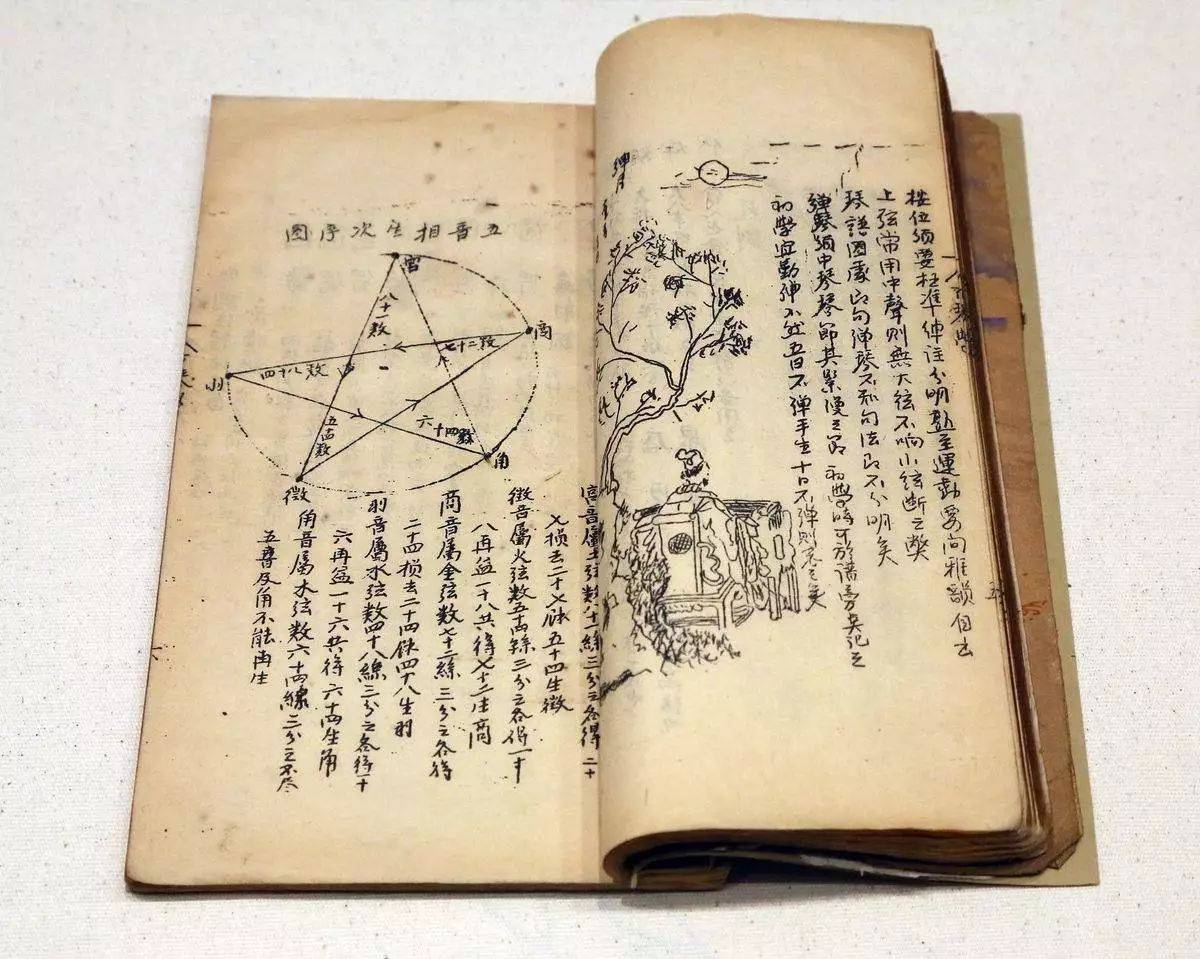 按位須要校准伸注分明熟至運動要向雅韻自去
上弦常用中聲則無大弦不响小弦断之獘
琴譜圖象即句弹琴不知句法即不分明矣
弹琴須中琴琴節其緊慢之節初學時可於譜旁夹记之
初學宜勤弹不然五日不弹手生十日不弹則忘之矣
五音相生次序图
宫
八十一数
商
七十二数
羽
四十八数
五十四数
六十四數
角
徵
宫音屬土弦数八十一絲三分之各得二十
七损去二十七馀五十四生徵
徵音屬火弦数五十四絲三分之各得一十
八再益一十八共得七十二生商
商音屬金弦数七十二絲三分之各得
二十四损去二十四馀四十八生羽
羽音屬水弦数四十八絲三分之各得一十
六再益一十六共得六十四生角
角音屬木弦数六十四絲三分之不尽
五音及角不能再生